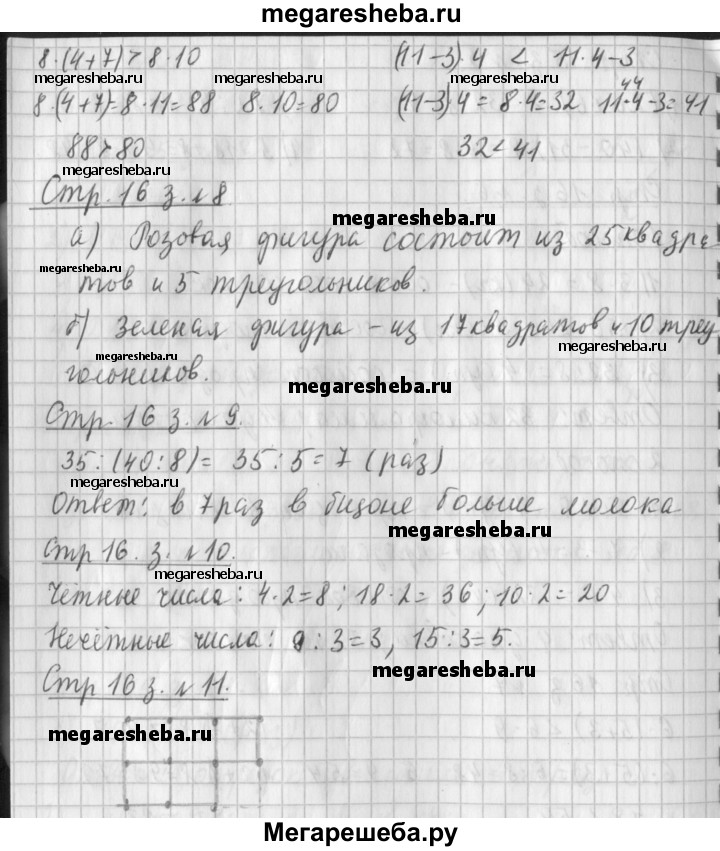 megaresheba.ru
8·(4+7)>8·10 (11-3)·4 < 11·4-3
megaresheba.ru megaresheba.ru megaresheba.ru
44
8·(4+7)=8·11=88 8·10=80 (11-3)4=8·4=32 11·4-3=41
88>80 32<41
megaresheba.ru
Стр. 16 з. №8
megaresheba.ru
а) Розовая фигура состоит из 25 квадра
megaresheba.ru
тов и 5 треугольников.
б) Зеленая фигура - из 17 квадратов и 10 треу
megaresheba.ru
megaresheba.ru
гольников.
megaresheba.ru
Стр. 16 з. №9.
35:(40:8)= 35:5=7 (раз)
megaresheba.ru
Ответ: в 7 раз в бидоне больше молока
megaresheba.ru
Стр 16. з. №10.
megaresheba.ru
Чётные числа: 4·2=8; 18·2=36; 10·2=20
Нечётные числа: 9:3=3, 15:3=5.
megaresheba.ru
Стр 16 з. №11.
megaresheba.ru
Мегарешеба.ру